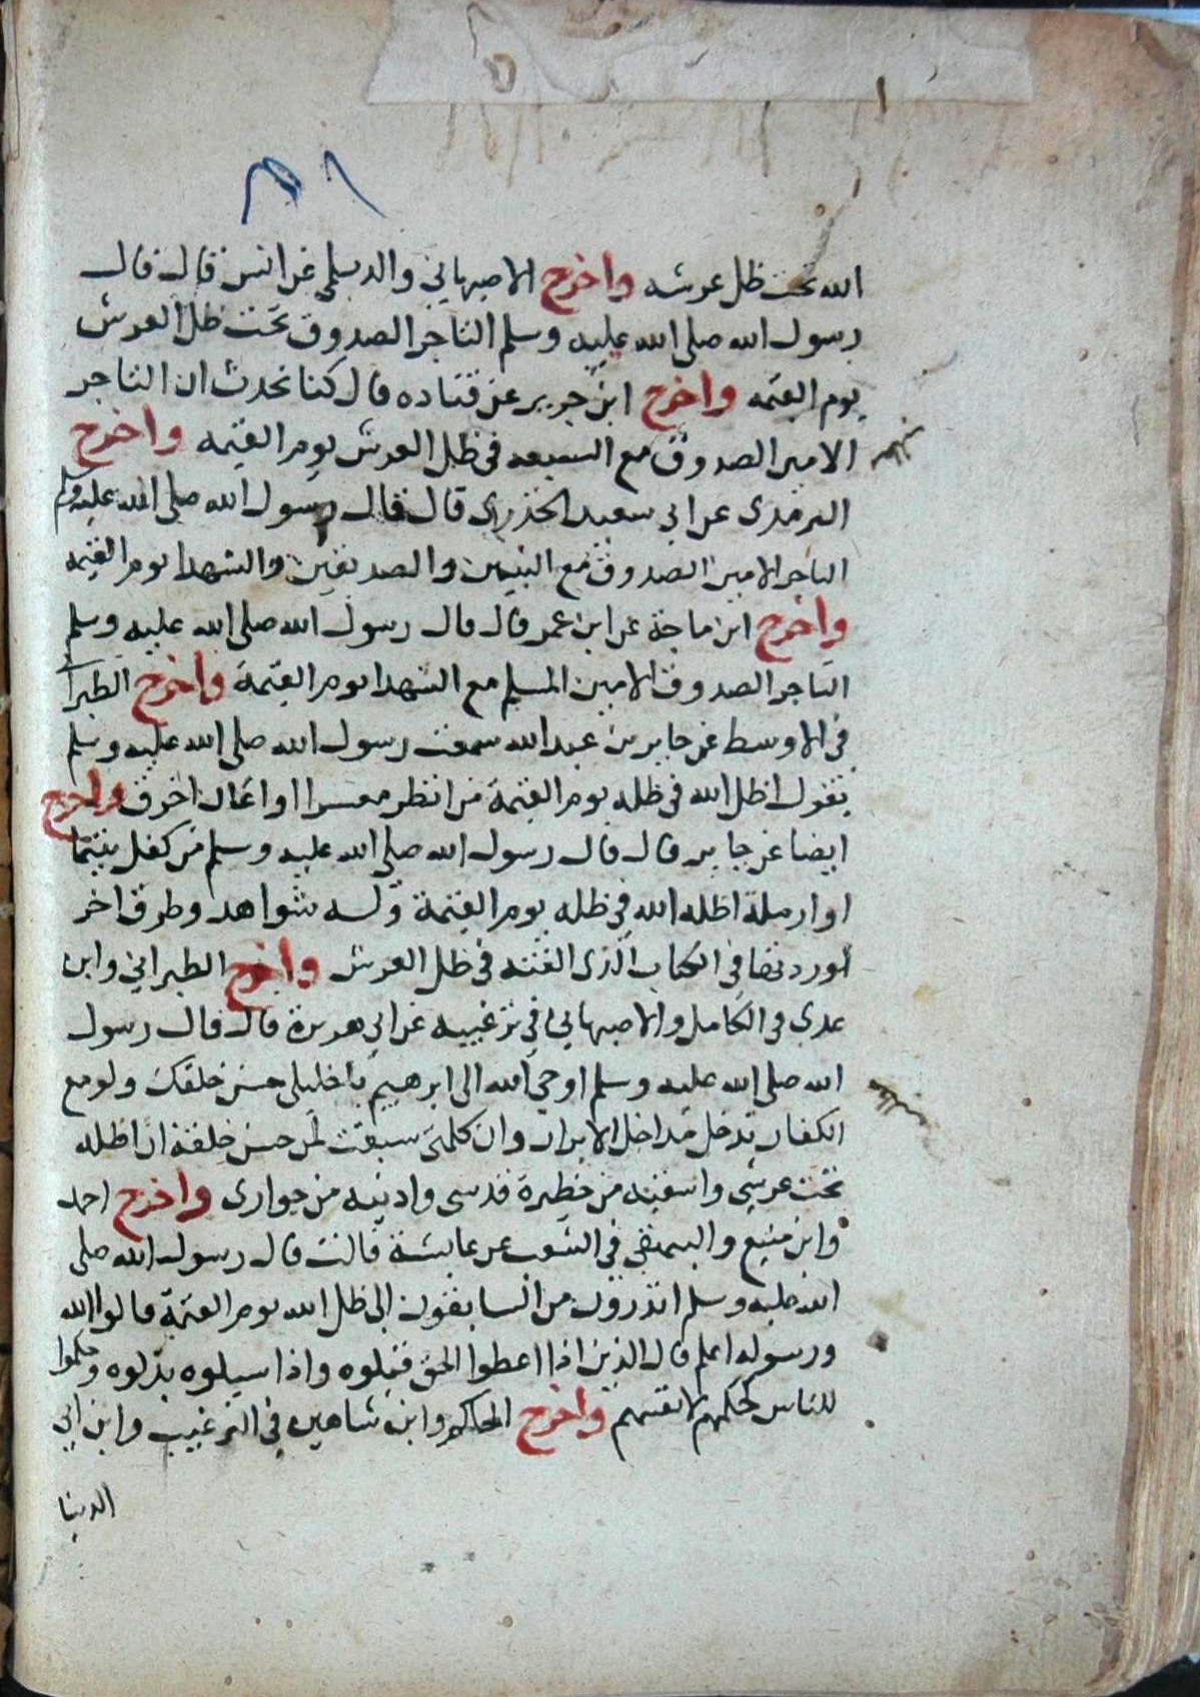 الله تحت ظل عرشه واخرج الاصبهاني والديلمي عن انس قال قال
رسول الله صلى الله عليه وسلم التاجر الصدوق تحت ظل العرش
يوم القيمه واخرج ابن جرير عن قتاده قال كنا نحدث ان التاجر
الامين الصدوق مع السبعه في ظل العرش يوم القيمه واخرج
الترمذي عن ابي سعيد الخذري قال قال رسول الله صلى الله عليه وسلم
التاجر الامين الصدوق مع النبيين والصديقين والشهدا يوم القيمه
واخرج ابن ماجة عن ابن عمر قال قال رسول الله صلى الله عليه وسلم
التاجر الصدوق الامين المسلم مع الشهدا يوم القيمة واخرج الطبرا
في الاوسط عن جابر بن عبد الله سمعت رسول الله صلى الله عليه وسلم
يقول اظل الله في ظله يوم القيمة من انظر معسرا او اعان اخرق واخرج
ايضا عن جابر قال قال رسول الله صلى الله عليه وسلم من كفل يتيما
او ارملة اظله الله في ظله يوم القيمة وله شواهد وطرق اخر
اوردتها في الكتاب الذي الفته في ظل العرش واخرج الطبراني وابن
عدي في الكامل والاصبهاني في ترغيبه عن ابي هريرة قال قال رسول
الله صلى الله عليه وسلم اوحي الله الى ابرهيم يا خليلي حسن خلقك ولو مع
الكفار تدخل مداخل الابرار وان كلمتي سبقت لمن حسن خلقه ان اظله
تحت عرشي واسقيه من حظيرة قدسي وادنيه من جواري واخرج احمد
وابن منيع والبيهقي في الشعب عن عايشة قالت قال رسول الله صلى
الله عليه وسلم اتدرون من السابقون الى ظل الله يوم القيمة قالوا الله
ورسوله اعلم قال الذين اذا اعطوا الحق قبلوه واذا سيلوه بذلوه وحكموا
للناس كحكمهم لانفسهم واخرج الحاكم وابن شاهين في الترغيب وابن ابي
الدنيا